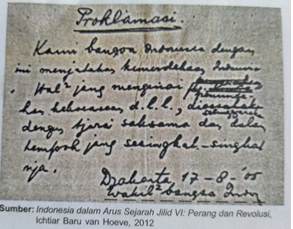 Proklamasi.
Kami bangsa Indonesia dengan
ini menjatakan kemerdekaan Indonesia
. Hal² jang mengenai
han kekoeasaan d.l.l., diselenggarakan
dengan tjara saksama dan dalam
tempoh jang sesingkat-singkat
nja.
Djakarta, 17 - 8 - '05
Wakil² bangsa Indon
Sumber: Indonesia dalam Arus Sejarah Jilid VI: Perang dan Revolusi,
Ichtiar Baru van Hoeve, 2012